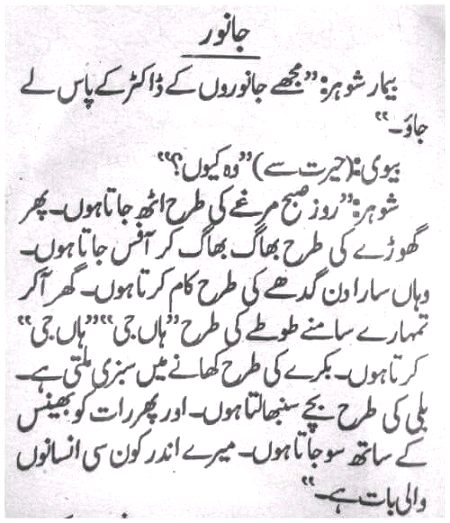 جانور
بیمار شوہر: ”مجھے جانوروں کے ڈاکٹر کے پاس لے
جاؤ۔“
بیوی: (حیرت سے) ”وہ کیوں؟“
شوہر: ”روز صبح مرغے کی طرح اٹھ جاتا ہوں۔ پھر
گھوڑے کی طرح بھاگ بھاگ کر آفس جاتا ہوں۔
وہاں سارا دن گدھے کی طرح کام کرتا ہوں۔ گھر آ کر
تمہارے سامنے طوطے کی طرح ”ہاں جی“ ”ہاں جی“
کرتا ہوں۔ بکرے کی طرح کھانے میں سبزی ملتی ہے۔
بلی کی طرح بچے سنبھالتا ہوں۔ اور پھر رات کو بھینس
کے ساتھ سو جاتا ہوں۔ میرے اندر کون سی انسانوں
والی بات ہے۔“